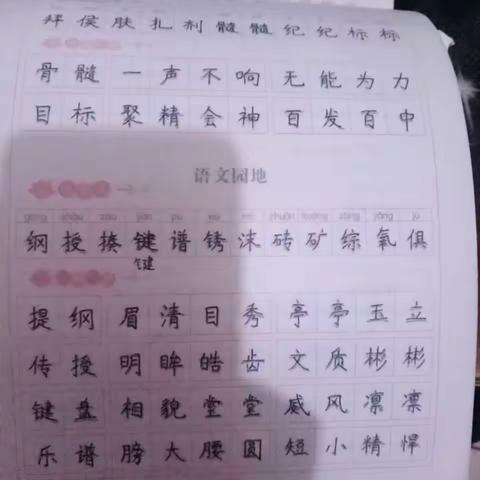 拜 侯 肤 扎 剂 髓 髓 纪 纪 标 标
骨髓 一声不响 无能为力
目标 聚精会神 百发百中
语文园地
纲 授 揍 键 谱 锈 沫 砖 矿 综 氧 俱
键
提纲 眉清目秀 亭亭玉立
传授 明眸皓齿 文质彬彬
键盘 相貌堂堂 威风凛凛
乐谱 膀大腰圆 短小精悍